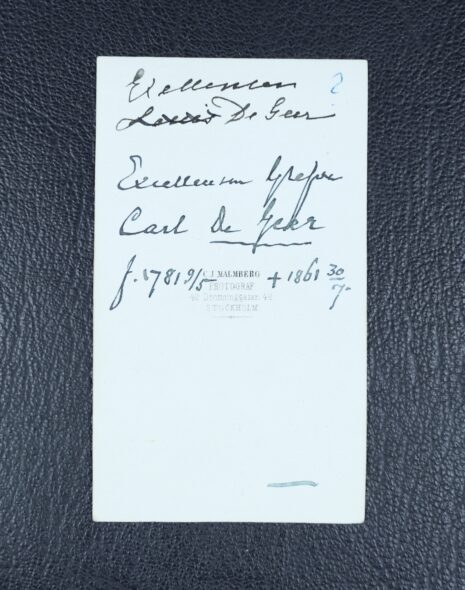 Exellensen 2
Louis De Geer
Excellensen Grefve
Carl De Geer
f. 1781 9/5 + 1861 30/7.
C J. MALMBERG
PHOTOGRAF
42 Drottninggatan 42
STOCKHOLM